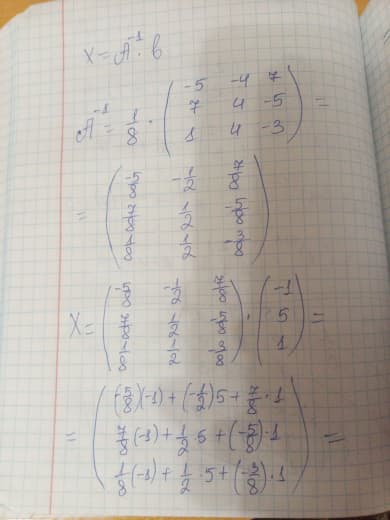 X = A⁻¹ · b
A⁻¹ = 1/8 · ( -5 -4 7
7 4 -5
1 4 -3 ) =
= ( -5/8 -1/2 7/8
7/8 1/2 -5/8
1/8 1/2 -3/8 )
X = ( -5/8 -1/2 7/8
7/8 1/2 -5/8
1/8 1/2 -3/8 ) · ( -1
5
1 ) =
= ( (-5/8)(-1) + (-1/2)5 + 7/8 · 1
7/8 (-1) + 1/2 · 5 + (-5/8) · 1
1/8 (-1) + 1/2 · 5 + (-3/8) · 1 ) =